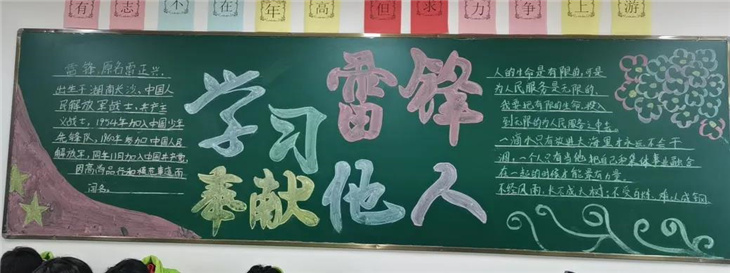 有志不在年高但求力争上游
雷锋,原名雷正兴,
出生于湖南长沙,中国人
民解放军战士,共产主
义战士,1954年加入中国少年
先锋队,1960年参加中国人民
解放军,同年11月加入中国共产党,
因高尚品行和模范事迹而
闻名。
学习雷锋
奉献他人
人的生命是有限的,可是
为人民服务是无限的,
我要把有限的生命,投入
到无限的为人民服务之中去。
一滴水只有放进大海里才永远不会干
涸,一个人只有当他把自己和集体事业融合
在一起的时候才能最有力量。
不经风雨,长不成大树;不受百炼,难以成钢。